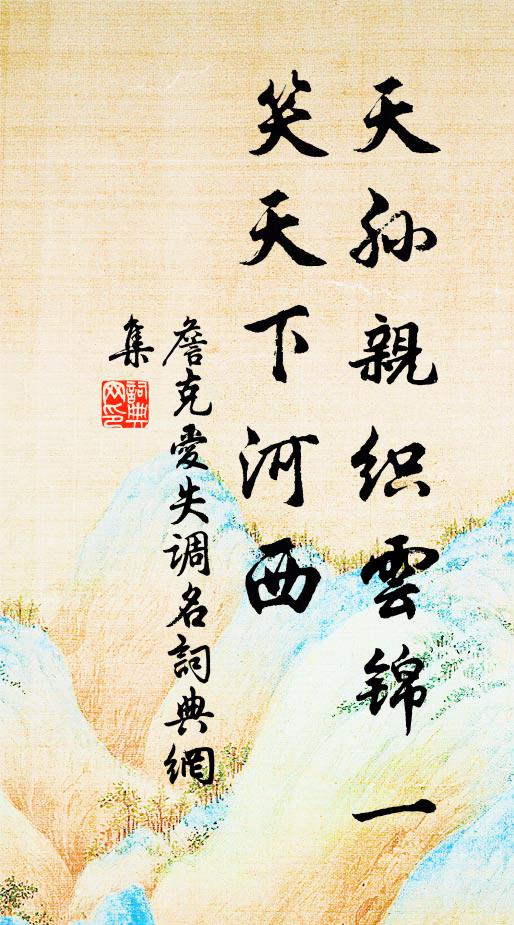 天孙親织雲錦一
笑天下河西
詹克愛失调名詞典網
集
詞典
网印